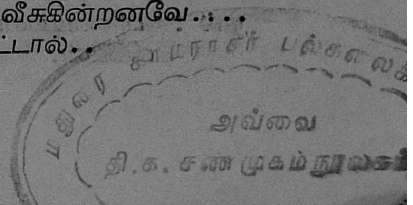 வீசுகின்றனவே....
ட்டால்..
மதுரை காமராசர் பல்கலைக
அவ்வை
தி. க. சண்முகம் நூலகம்